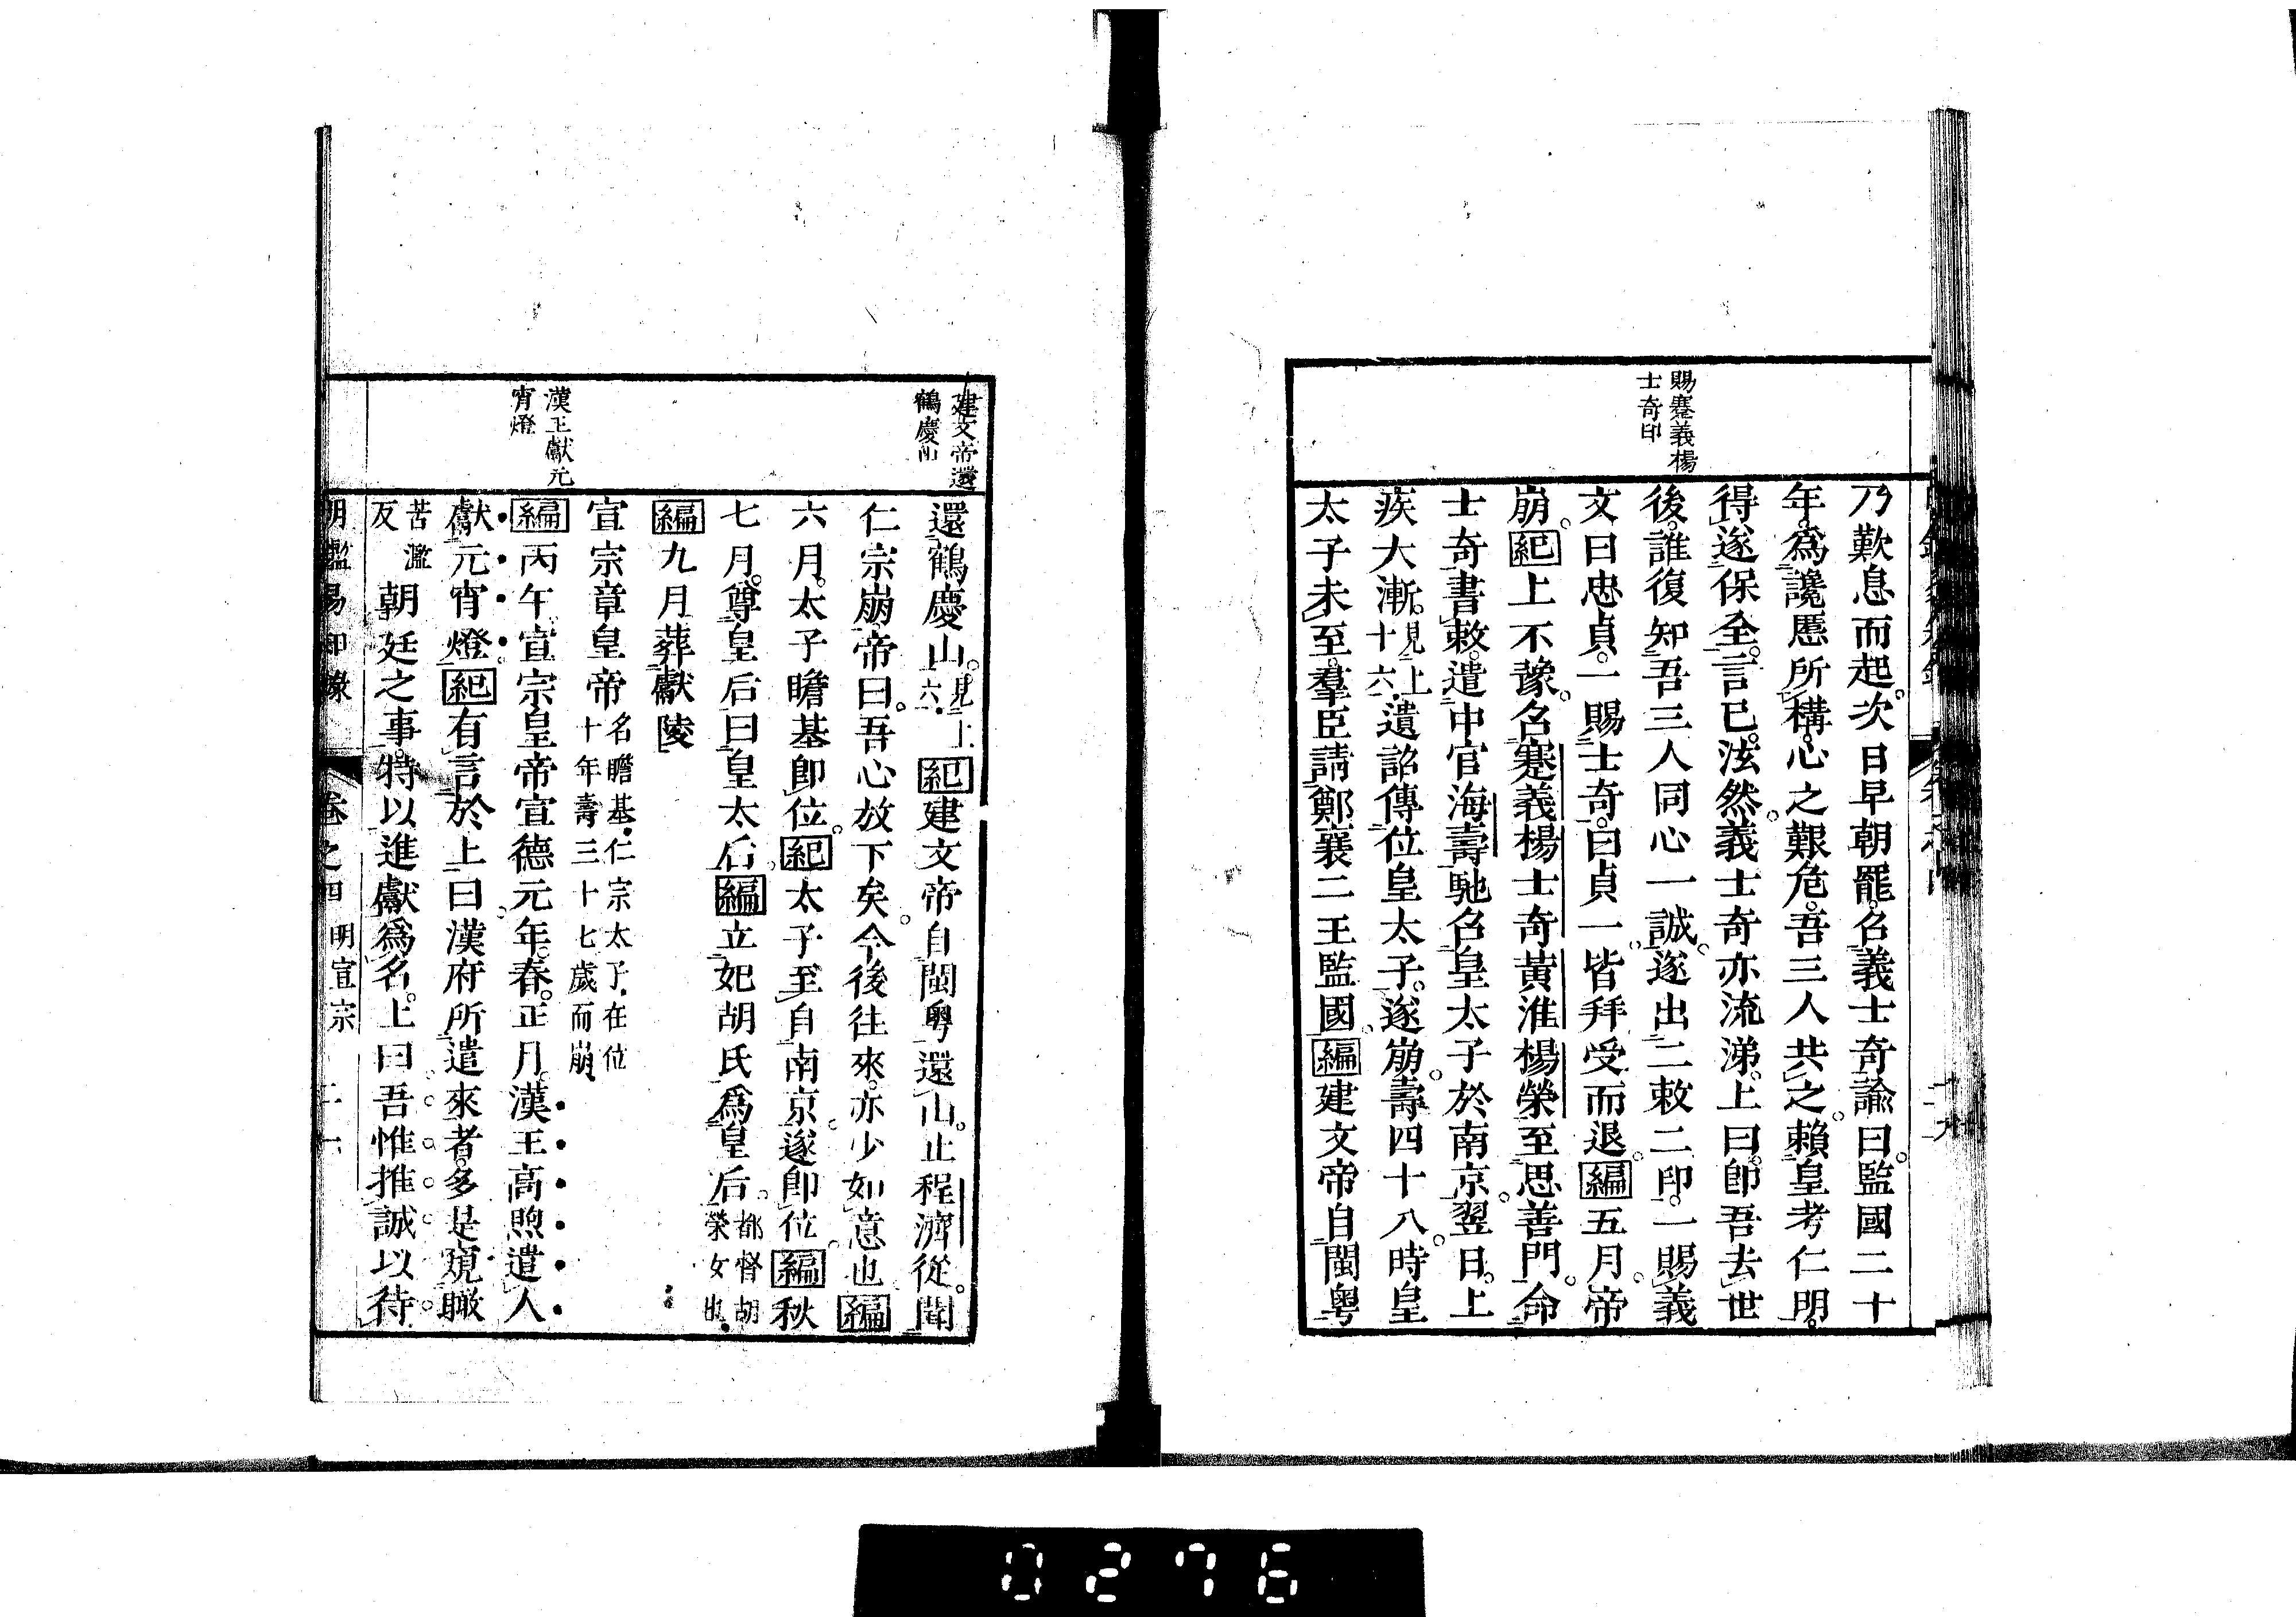 賜蹇義楊
士奇印
乃歎息而起。次日早朝罷。召義士奇諭曰。監國二十
年。為讒慝所構。心之艱危。吾三人共之。賴皇考仁明。
得遂保全。言已。泫然。義士奇亦流涕。上曰。卽吾去世
後。誰復知吾三人同心一誠。遂出二敕二印。一賜義
文曰忠貞。一賜士奇。曰貞一。皆拜受而退。編五月。帝
崩。紀上不豫。召蹇義楊士奇黃淮楊榮至思善門。命
士奇書敕。遣中官海壽馳召皇太子於南京。翌日。上
疾大漸。見上十六。遺詔傳位皇太子。遂崩。壽四十八。時皇
太子未至。羣臣請鄭襄二王監國。編建文帝自閩粵
建文帝還
鶴慶山
還鶴慶山。見上六。紀建文帝自閩粵還山。止程濟從。聞
仁宗崩。帝曰。吾心放下矣。今後往來。亦少如意也。編
六月。太子瞻基卽位。紀太子至自南京。遂卽位。編秋
七月。尊皇后曰皇太后。編立妃胡氏爲皇后。都督胡榮女也。
編九月葬獻陵
宣宗章皇帝 名瞻基。仁宗太子。在位十年壽三十七歲而崩。
漢王獻元
宵燈
編丙午宣宗皇帝宣德元年。春。正月。漢王高煦遣人
獻元宵燈。紀有言於上曰。漢府所遣來者。多是窺瞰
苦濫反朝廷之事。特以進獻爲名。上曰。吾惟推誠以待
明鑑易知錄 卷之四 明宣宗
0276